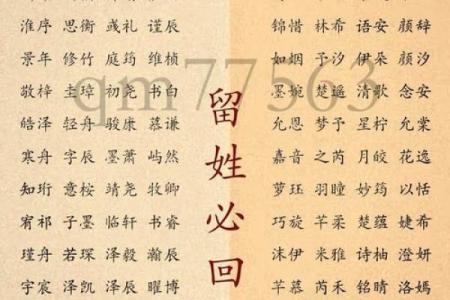 淮序 思衡 彧礼 谨辰
景年 修竹 庭筠 维桢
敬梓 圭璋 初尧 书白
皓泽 轻舟 骏康 慕谦
寒舟 宇辰 墨萧 屿然
知珩 意桉 靖尧 牧卿
宥祁 子墨 临轩 书睿
瑾舟 若琛 泽毅 瀚辰
宇宸 泽凯 泽辰 曜博
留姓必回
锦惜 林希 语安 颜辞
如烟 予汐 伊朵 颜汐
墨婉 楚遥 清歌 念安
允恩 梦予 星柠 允棠
嘉音 之芮 月皎 花逸
萝珏 羽瞳 妙筠 以恬
巧旋 芊柔 楚蕴 婕希
沫伊 米雅 诗柚 澄妍
芊慕 芮禾 铭晴 洛嫣
qm77563